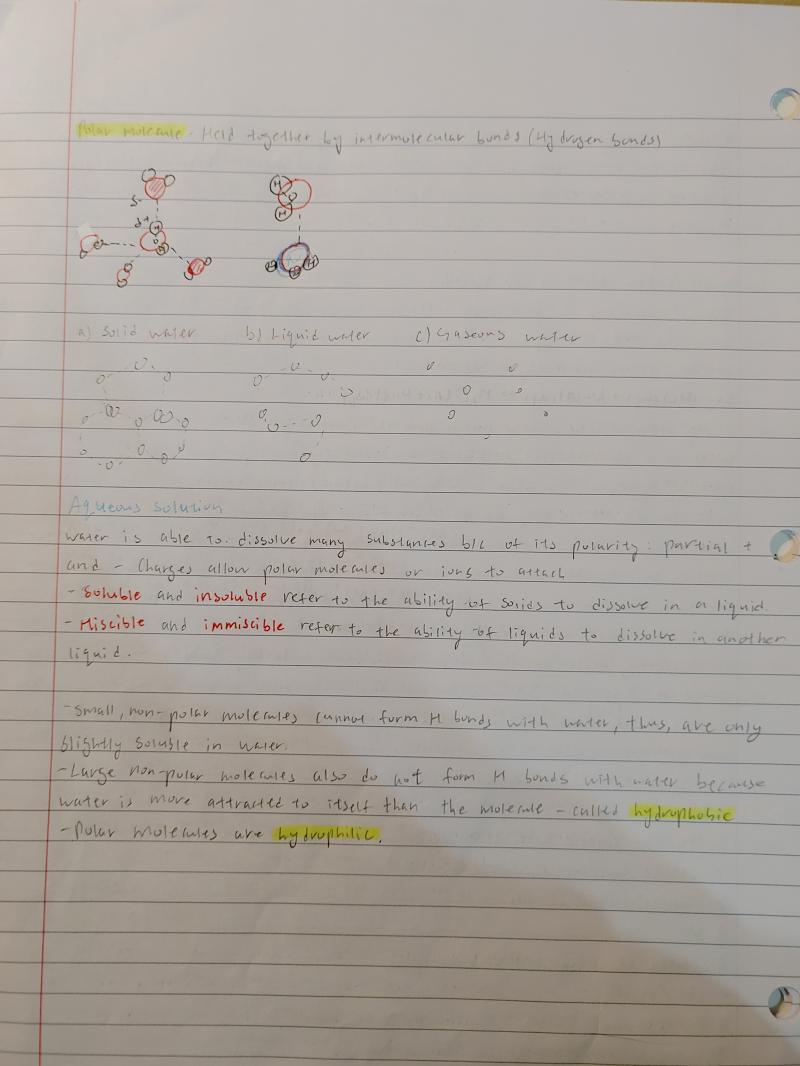 Polar molecule - Held together by intermolecular bonds (Hydrogen bonds)
δ-
δ+
H
H
O
H
H
O
H
H
H
a) Solid water b) Liquid water c) Gaseous water
Aqueous solution
water is able to dissolve many substances b/c of its polarity: partial +
and - charges allow polar molecules or ions to attach
- Soluble and insoluble refer to the ability of solids to dissolve in a liquid.
- Miscible and immiscible refer to the ability of liquids to dissolve in another
liquid.
- Small, non-polar molecules cannot form H bonds with water, thus, are only
slightly soluble in water.
- Large non-polar molecules also do not form H bonds with water because
water is more attracted to itself than the molecule - called hydrophobic
- Polar molecules are hydrophilic.